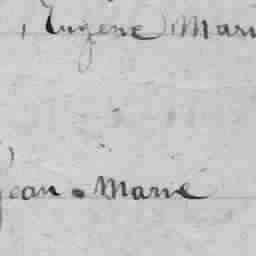 , Eugène Mari
Jean. Marie